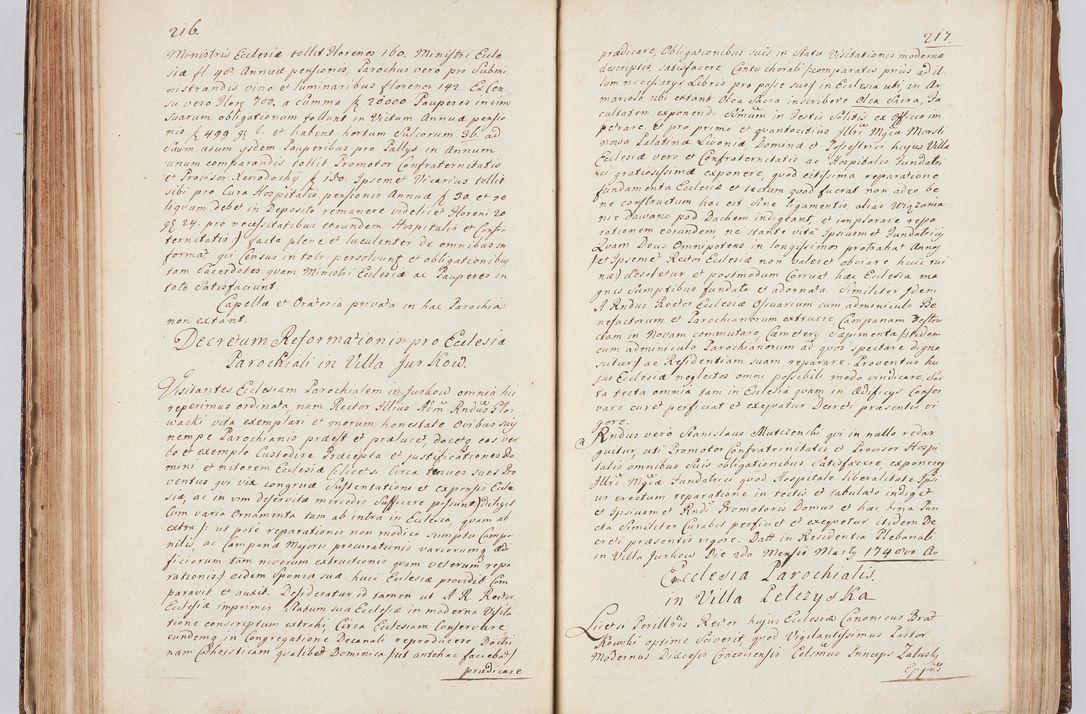 216.
Ministris Ecclesiæ tollit florenos 160. Ministri Eccle
siæ fl 40. Annuæ pensionis, Parochus vero pro Submi
nistrandis vino et luminaribus florenos 142. Ex Cen
su vero flor 700. a Summa fl 20000 Pauperes in vim
suarum obligationum tollunt in Victum Annuæ pensio
nis fl 499 gr 6. et habent hortum Sulcorum 36. ad
Suum usum ijsdem Pauperibus pro Pallys in Annum
unum comparandis tollit Promotor Confraternitatis
et Provisor Xenodochij fl 150. Ipsemet Vicarius tollit
sibi pro Cura Hospitalis pensionis Annuæ fl 30. et re
liquum debet in Deposito remanere videlicet floreni 20
gr 24. pro necessitatibus eorundem Hospitalis et Confra
ternitatis:) facta plene et luculenter de omnibus in
forma, qui Census in toto persolvunt et obligationibus
tam Sacerdotes quam Ministri Ecclesiæ ac Pauperes in
toto Satisfaciunt.
Capellæ et Oratoria privata in hac Parochia
non extant.
Decretum Reformationis pro Ecclesia
Parochiali in Villa Jurkow.
Visitantes Ecclesiam Parochialem in Jurkow omnia hic
reperimus ordinata, nam Rector Illius Adm Rndus Glo
wacki vita exemplari et morum honestate Ovibus suis
nempe Parochianis præest et prælucet, docetq eos ver
bo et exemplo Custodire Præcepta et justificationes Do
mini et nitorem Ecclesiæ
ventus qui vix congruæ Sustentationi et expensis Eccle
siæ, ac in vim deservitæ mercedis Sufficere possunt) diligit
Cum varia Ornamenta tam ab intra in Ecclesia quam ab
extra (: ut pote reparationis non modico sumptu Campa
nilis, ac Campanæ Majoris procurationis variorumq ædi
ficiorum tam novorum extructionis quam veterum repa
rationis:) eidem Sponsæ suæ huic Ecclesiæ providit Com
paravit et auxit. Desideratur id tamen ut A. R. Rector
Ecclesiæ imprimis Statum suæ Ecclesiæ in moderna Visita
tione conscriptum extrahi, Circa Ecclesiam Conservare
eundemq in Congregatione Decanali reproducere Doctri
nam Catheisticam qualibet Dominica (ut antehac faciebat)
prædicare
217
prædicare, Obligationibus suis in Statu Visitationis modernæ
descriptis, satisfacere, Cantu chorali (comparatis prius ad il
lum necessarys Libris pro posse suo) in Ecclesia uti, in Ar
mariolo ubi extant Olea Sacra inscribere Olea Sacra, Fa
cultatem exponendi in Festis Solitis ex Officio im
petrare, et pro primo et quantocitius Illri Mgcæ
nowa Palatinæ Livoniæ Dominæ et hujus Villæ
Ecclesiæ vero et Confraternitatis ac Hospitalis Fundatri
ci gratiosissimæ exponere, quod citissima reparatione
fundamenta Ecclesiæ et tectum quod fuerat non adeo be
ne constructum hoc est sine ligamentis, alias Wiązania
nie dawano pod Dachem indigeant, et implorare repa
rationem eorundem ne stante vita Ipsiusmet Fundatricis
Quam Deus Omnipotens in longissimos protrahat Annos
(et Ipsemet Rector Ecclesiæ non valeret obviare huic rui
næ) desoletur et postmodum Corruat hæc Ecclesia ma
gnis Sumptibus fundata et adornata. Similiter Idem
A Rndus Rector Ecclesiæ Ossuarium cum adminiculo Be
nefactorum et Parochianorum extruere, Campanam
ctam in Novam commutare, Cæmetery (itidem
cum adminiculo Parochianorum ad quos spectare digno
scitur) ac Residentiam suam reparare, Proventus hu
jus Ecclesiæ neglectos omni possibili modo vindicare, Sar
ta tecta omnia tam in Ecclesia quam in ædificijs Conser
vare curet perficiat et exequatur Decreti præsentis vi
gore.
Rndus vero Stanislaus Mutczenski qui in nullo redar
guitur, uti Promotor Confraternitatis et Provisor Hospi
talis omnibus Suis obligationibus Satisfacere, exponereq
Illri Mgcæ Fundatrici quod Hospitale liberalitate Ipsi
us erectum reparatione in tectis et tabulato indiget
et Ipsiusmet Rndi Promotoris Domus et hæc bina Pun
cta Similiter Curabit perficiet et exequetur itidem De
creti præsentis vigore. Datt in Residentia Plebanali
in Villa Jurkow Die 2do Mensis Marty 1740mo A.
Ecclesia Parochialis.
in Villa Pelczyska
Licet Perillris Rector hujus Ecclesiæ Canonicus Brat
kowski optime Sciverit quod Vigilantissimus Pastor
Modernus Diæcesis Cracoviensis Celsmus Princeps Załuski
Eppus